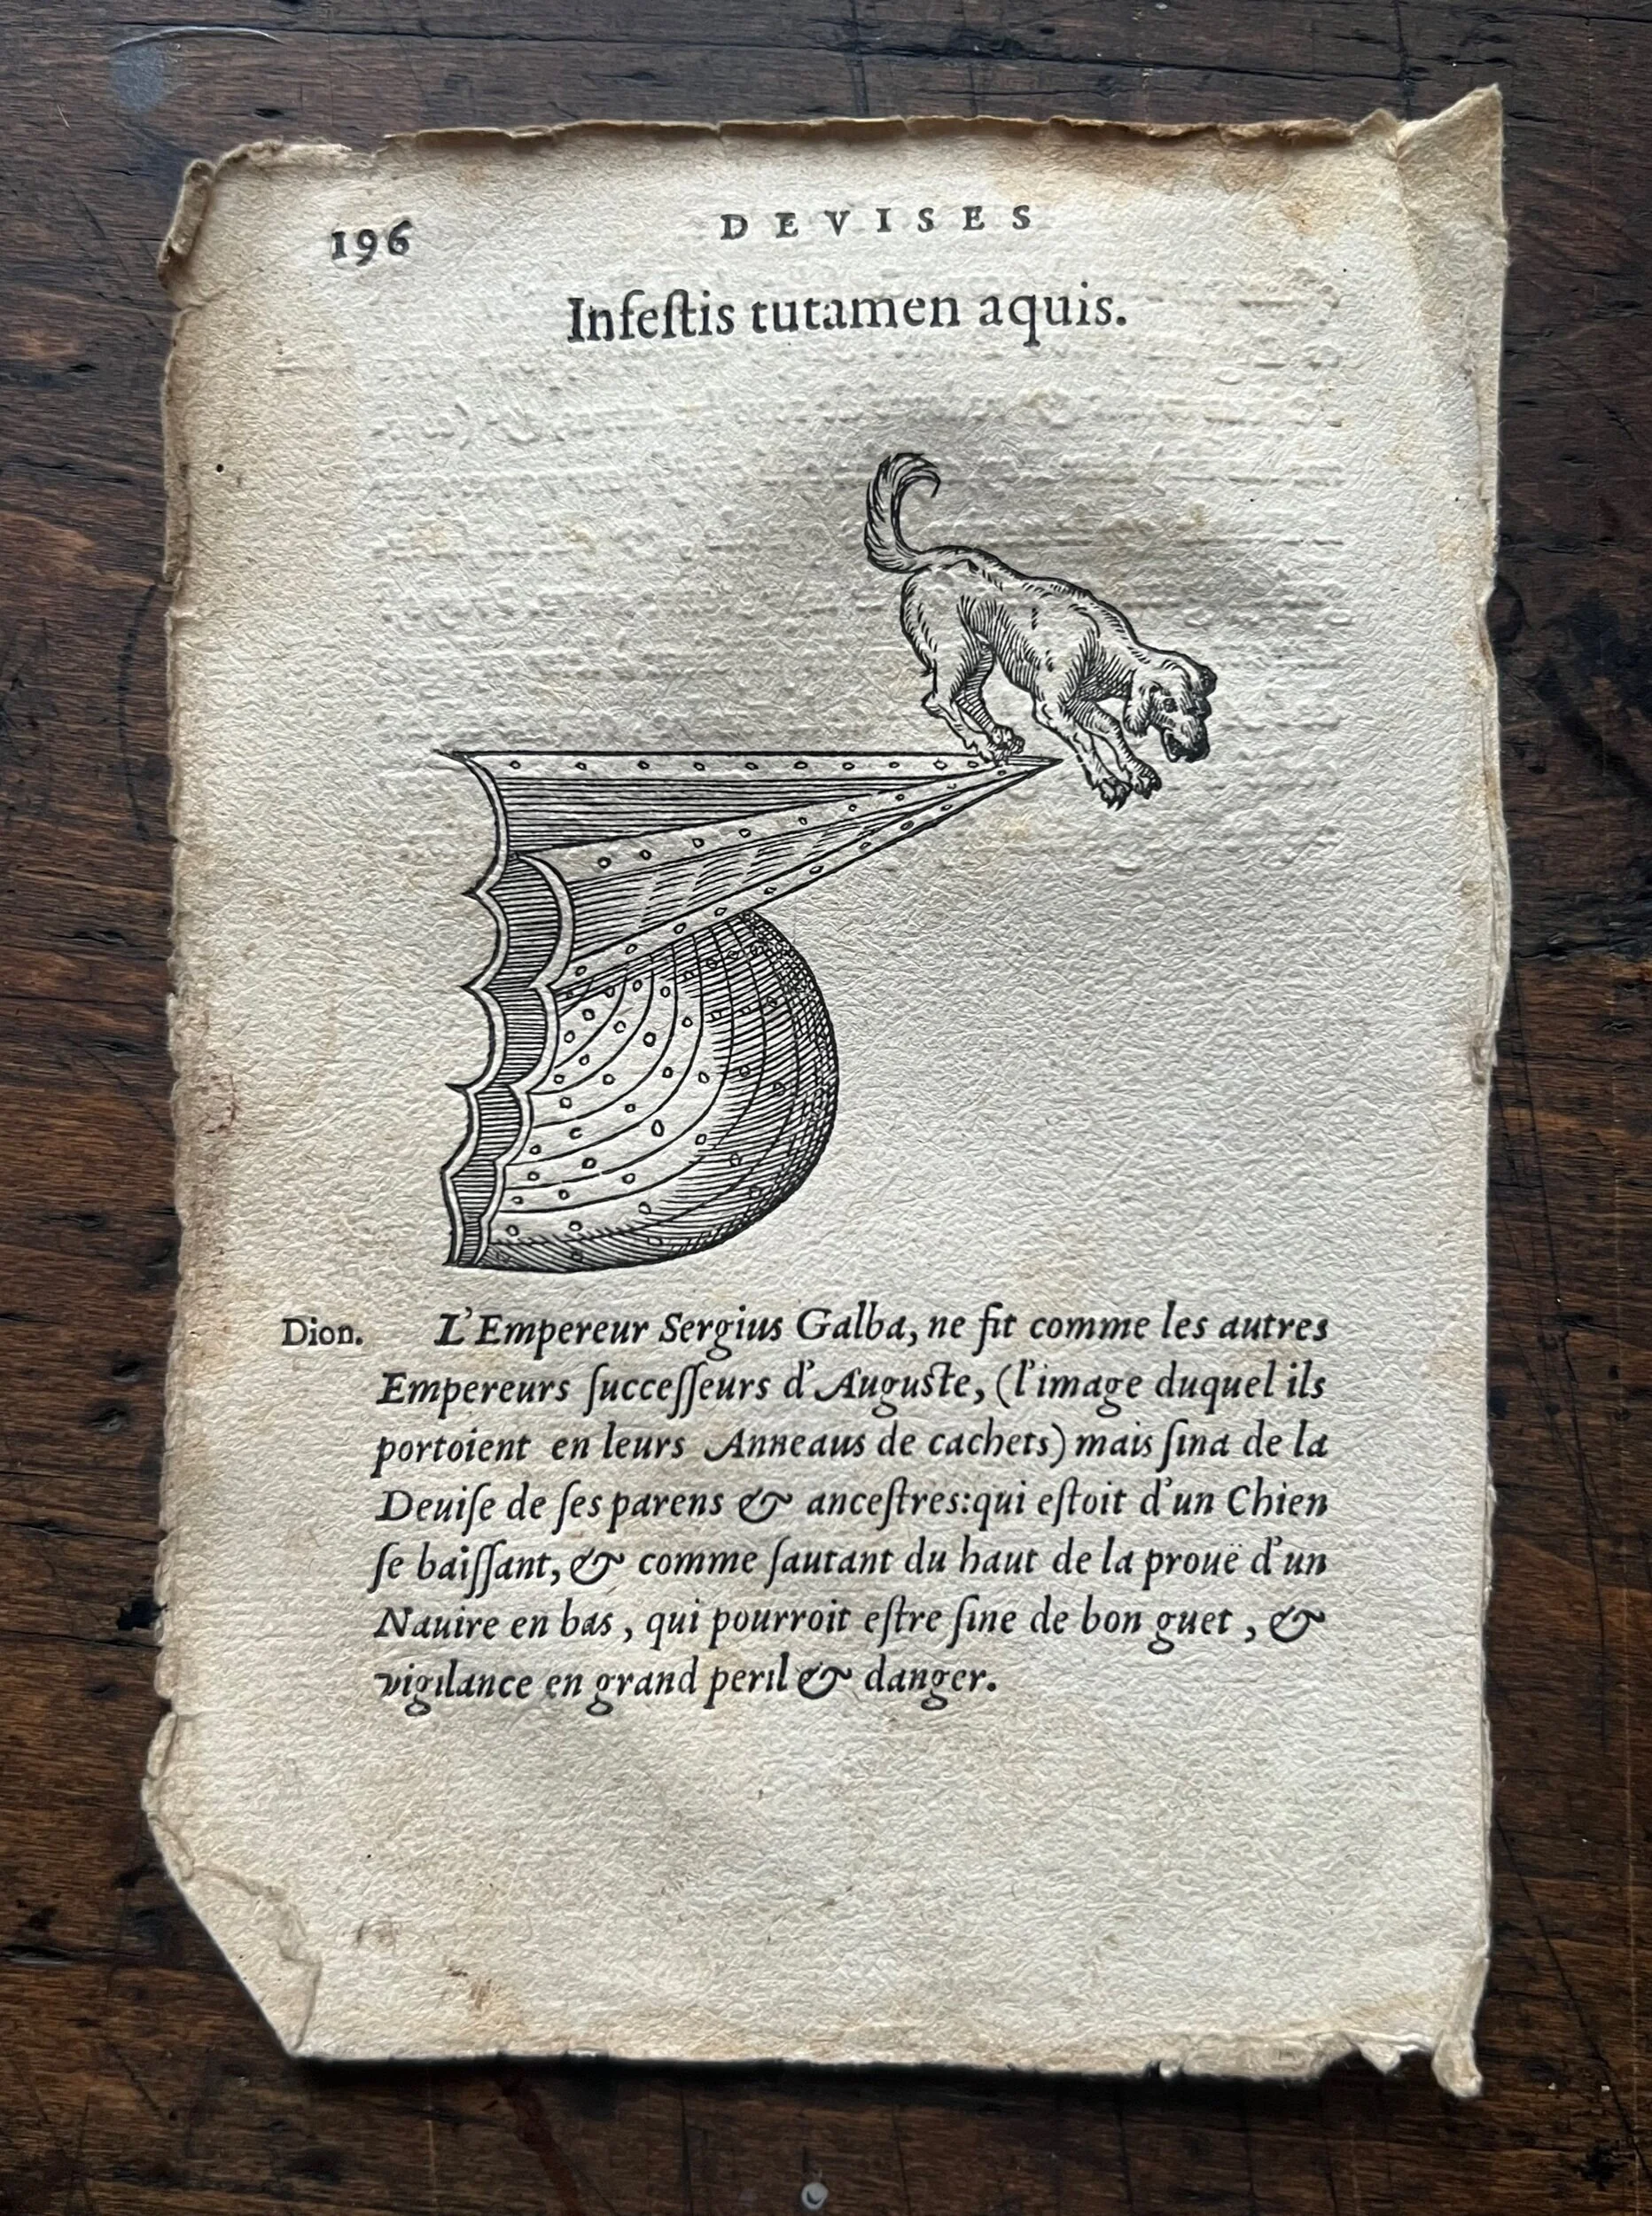 196
DEVISES
Infeſtis tutamen aquis.
Dion. L'Empereur Sergius Galba, ne fit comme les autres
Empereurs ſucceſſeurs d'Auguſte, (l'image duquel ils
portoient en leurs Anneaus de cachets) mais ſina de la
Deuiſe de ſes parens & anceſtres: qui eſtoit d'un Chien
ſe baiſſant, & comme ſautant du haut de la prouë d'un
Nauire en bas, qui pourroit eſtre ſine de bon guet, &
vigilance en grand peril & danger.